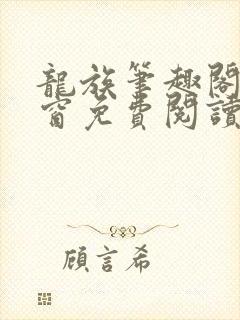 龍族筆趣閣
窗免費閱讀
顧言希